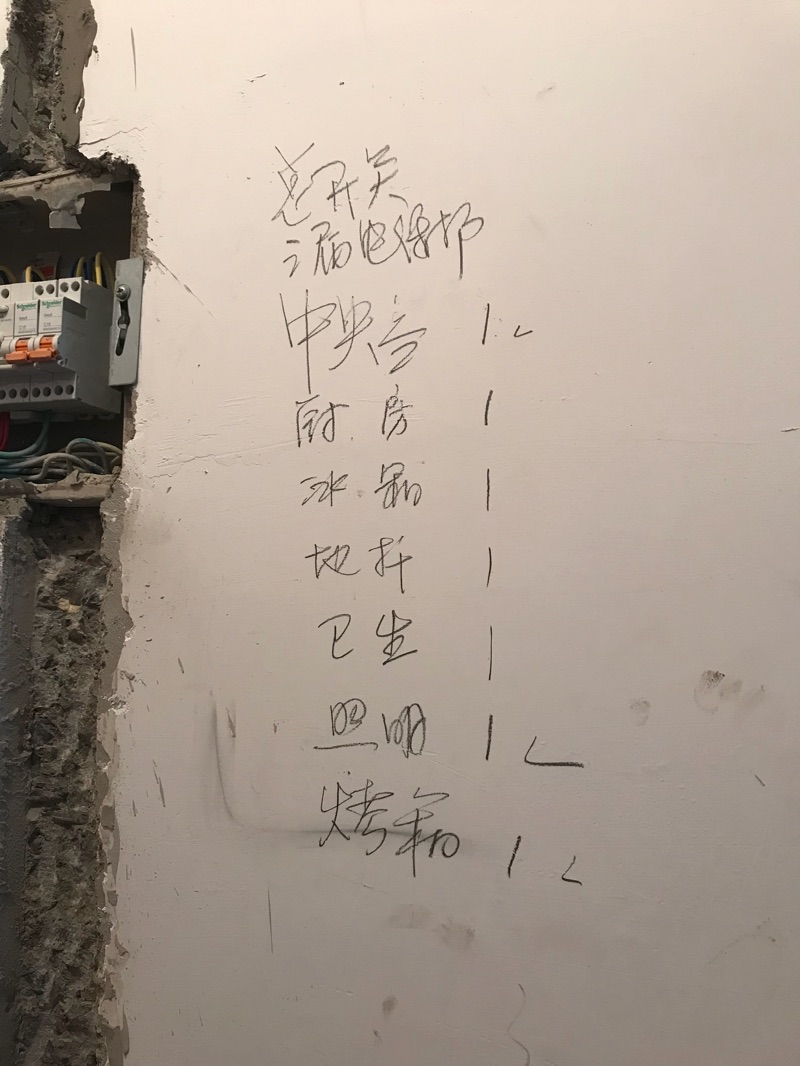 总开关
漏电保护
中央空 1.L
厨.房 1
冰.箱 1
地插 1
卫生 1
照明 1 L
烤箱 1 L
Schneider
Schneider